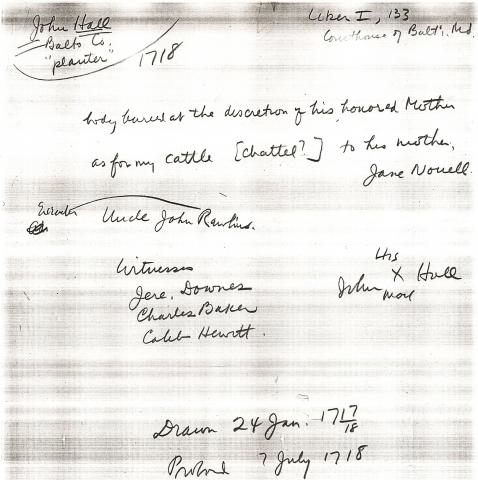 John Hall
Balto Co.
"planter"
1718
Liber I, 133
Courthouse of Balt. Md.
body buried at the discretion of his honored Mother
as for my cattle [chattel?] to his mother,
Jane Novell.
Executor Uncle John Rawlins.
Witnesses
Jere. Downes
Charles Baker
Caleb Hewitt.
His
John X Hall
mark
Drawn 24 Jan. 1717/18
Probed 7 July 1718